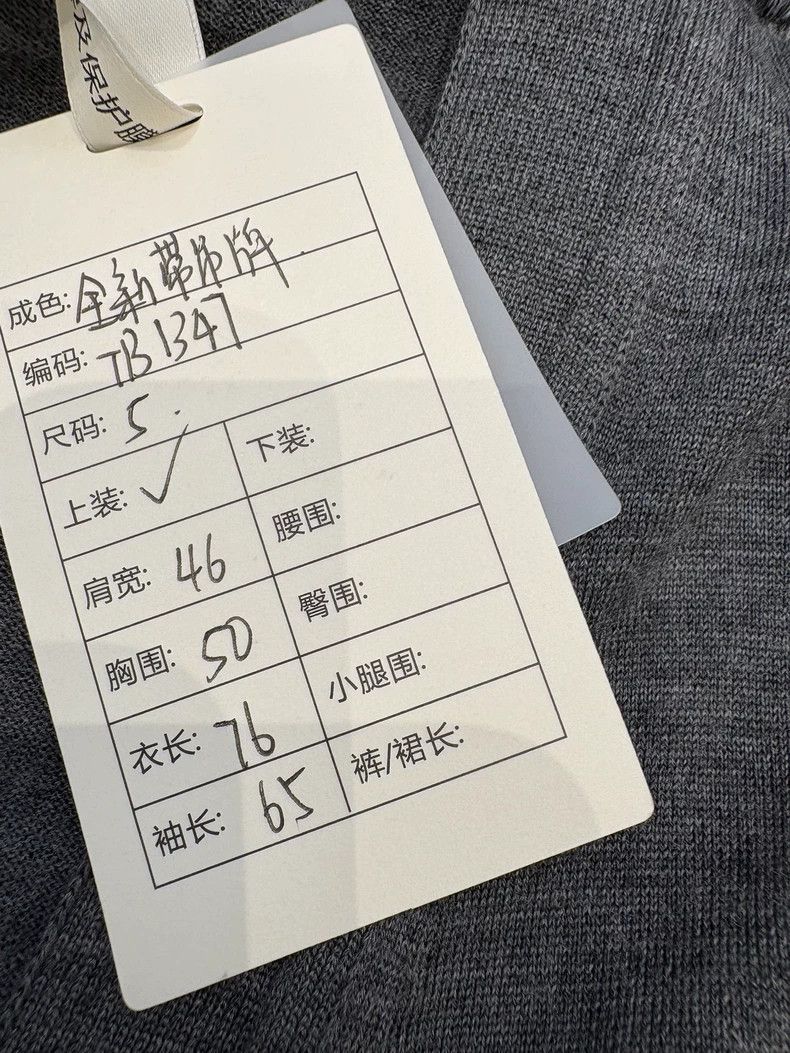 及保护膜
成色: 全新带吊牌.
编码: TB1347
尺码: 5.
上装: ✓ 下装:
肩宽: 46 腰围:
胸围: 50 臀围:
衣长: 76 小腿围:
袖长: 65 裤/裙长: